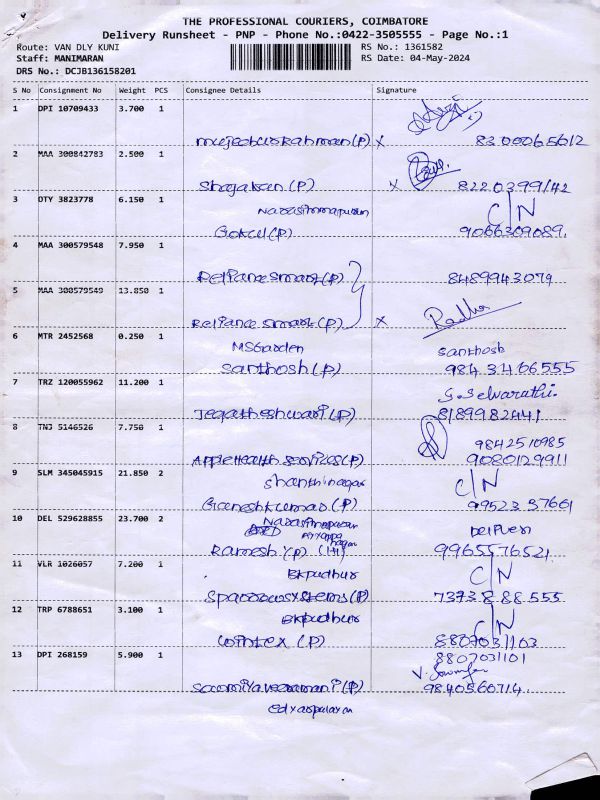 THE PROFESSIONAL COURIERS, COIMBATORE
Delivery Runsheet - PNP - Phone No.:0422-3505555 - Page No.:1
Route: VAN DLY KUNI RS No.: 1361582
Staff: MANIMARAN RS Date: 04-May-2024
DRS No.: DCJB136158201
S No Consignment No Weight PCS Consignee Details Signature
1 DPI 10709433 3.700 1
(P) X 8300065612
2 MAA 300842783 2.500 1
Shajahan (P) X 8220399142
3 DTY 3823778 6.150 1 C/N
Narasimmapuram
Gokul (P) 9066309089.
4 MAA 300579548 7.950 1
Reliance smart (P) 8489943079
5 MAA 300579549 13.850 1 Radha
Reliance smart (P) X
6 MTR 2452568 0.250 1
MSGarden Santhosh
Santhosh (P) 984 3466555
7 TRZ 120055962 11.200 1 S. Selvarathi.
Jegatheshwari (P) 8189982441
8 TNJ 5146526 7.750 1 9842510985
Apple Health Services (P) 9080129911
9 SLM 345045915 21.850 2 C/N
Shanthinagar
Ganeshkumar (P) 99523 37661
10 DEL 529628855 23.700 2
Narasimmapuram
Ayyappa
nagar
Ramesh Y (P) 9965576521
11 VLR 1026057 7.200 1 C/N
BKpudhur
Sparrowsystems (P) 7373888555
12 TRP 6788651 3.100 1 C/N
BKpudhur
Wintex (P) 8807031103
8807031101
13 DPI 268159 5.900 1
Sowmiyaveeramani (P) 9840560714.